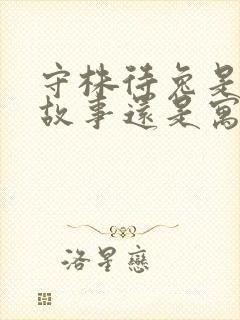 守株待兔是
故事還是寓
洛星戀